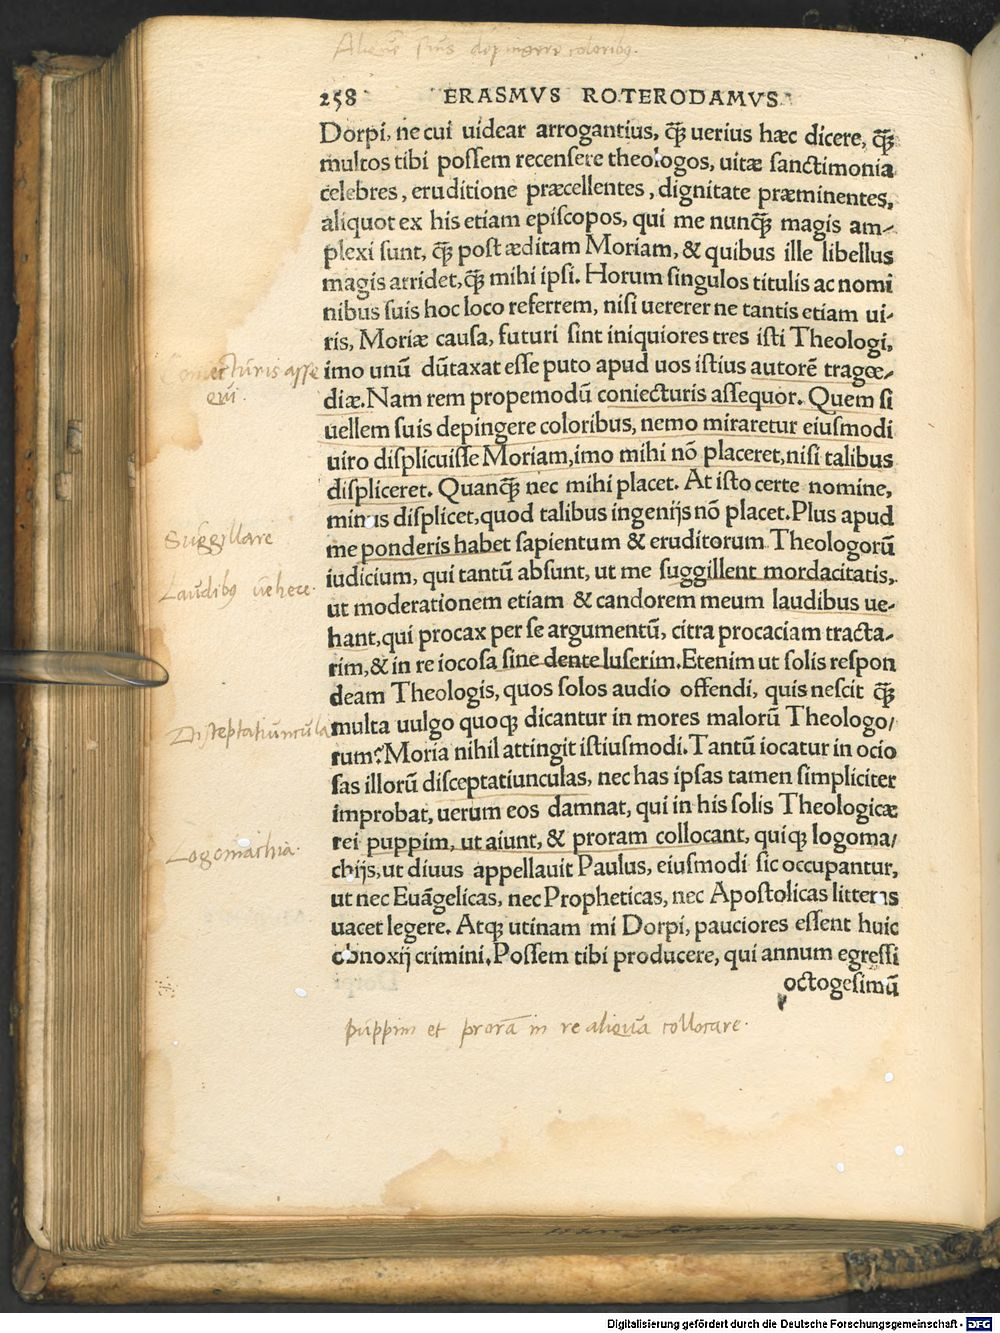 Aliquē suis depingere coloribꝰ.
258 ERASMVS ROTERODAMVS
Dorpi, ne cui uidear arrogantius, q̃ꝫ uerius hæc dicere, q̃ꝫ
multos tibi possem recensere theologos, uitæ sanctimonia
celebres, eruditione præcellentes, dignitate præminentes,
aliquot ex his etiam episcopos, qui me nunq̃ꝫ magis am-
plexi sunt, q̃ꝫ post æditam Moriam, & quibus ille libellus
magis arridet, q̃ꝫ mihi ipsi. Horum singulos titulis ac nomi
nibus suis hoc loco referrem, nisi uererer ne tantis etiam ui-
ris, Moriæ causa, futuri sint iniquiores tres isti Theologi,
imo unũ dũtaxat esse puto apud uos istius autorẽ tragœ-
diæ. Nam rem propemodũ coniecturis assequor. Quem si
uellem suis depingere coloribus, nemo miraretur eiusmodi
uiro displicuisse Moriam, imo mihi nõ placeret, nisi talibus
displiceret. Quanq̃ꝫ nec mihi placet. At isto certe nomine,
minus displicet, quod talibus ingenijs nõ placet. Plus apud
me ponderis habet sapientum & eruditorum Theologorũ
iudicium, qui tantũ absunt, ut me suggillent mordacitatis,
ut moderationem etiam & candorem meum laudibus ue-
hant, qui procax per se argumentũ, citra procaciam tracta-
rim, & in re iocosa sine dente luserim. Etenim ut solis respon
deam Theologis, quos solos audio offendi, quis nescit q̃ꝫ
multa uulgo quoqꝫ dicantur in mores malorũ Theologo/
rum? Moria nihil attingit istiusmodi. Tantũ iocatur in ocio
sas illorũ disceptatiunculas, nec has ipsas tamen simpliciter
improbat, uerum eos damnat, qui in his solis Theologicæ
rei puppim, ut aiunt, & proram collocant, quiqꝫ logoma/
chijs, ut diuus appellauit Paulus, eiusmodi sic occupantur,
ut nec Euãgelicas, nec Propheticas, nec Apostolicas litteras
uacet legere. Atqꝫ utinam mi Dorpi, pauciores essent huic
obnoxij crimini. Possem tibi producere, qui annum egressi
octogesimũ
Coniecturis asse
qui.
Suggillare
Laudibꝰ uehere.
Disceptatiuncula
Logomachia.
puppim et prorā in re aliqua collocare.
Digitalisierung gefördert durch die Deutsche Forschungsgemeinschaft - DFG